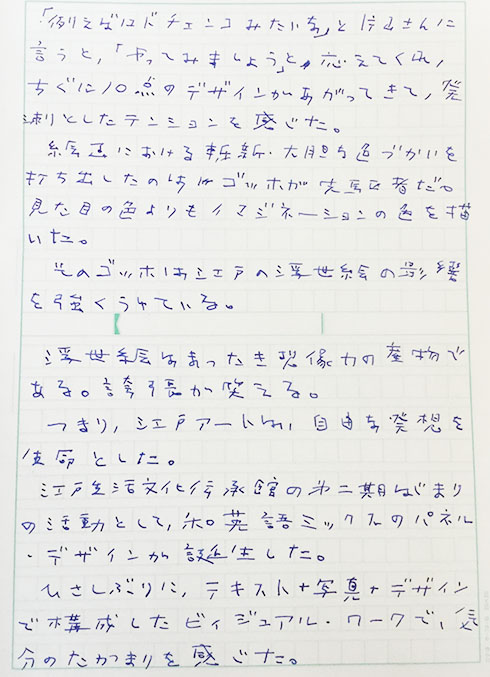 「例えばロドチェンコみたいな」と片山さんに
言うと、「やってみましょう」と応えてくれ、
すぐに10点のデザインがあがってきて、溌
溂としたテンションを感じた。
絵画における斬新・大胆な色づかいを
打ち出したのはゴッホが先駆者だ。
見た目の色よりもイマジネーションの色を描
いた。
そのゴッホは江戸の浮世絵の影響
を強くうけている。
浮世絵はまったき想像力の産物で
ある。誇張が笑える。
つまり、江戸アートは、自由な発想を
使命とした。
江戸生活文化伝承館の第二期はじまり
の活動として、和英語ミックスのパネル
・デザインが誕生した。
ひさしぶりに、テキスト+写真+デザイン
で構成したビィジュアル・ワークで、気
分のたかまりを感じた。